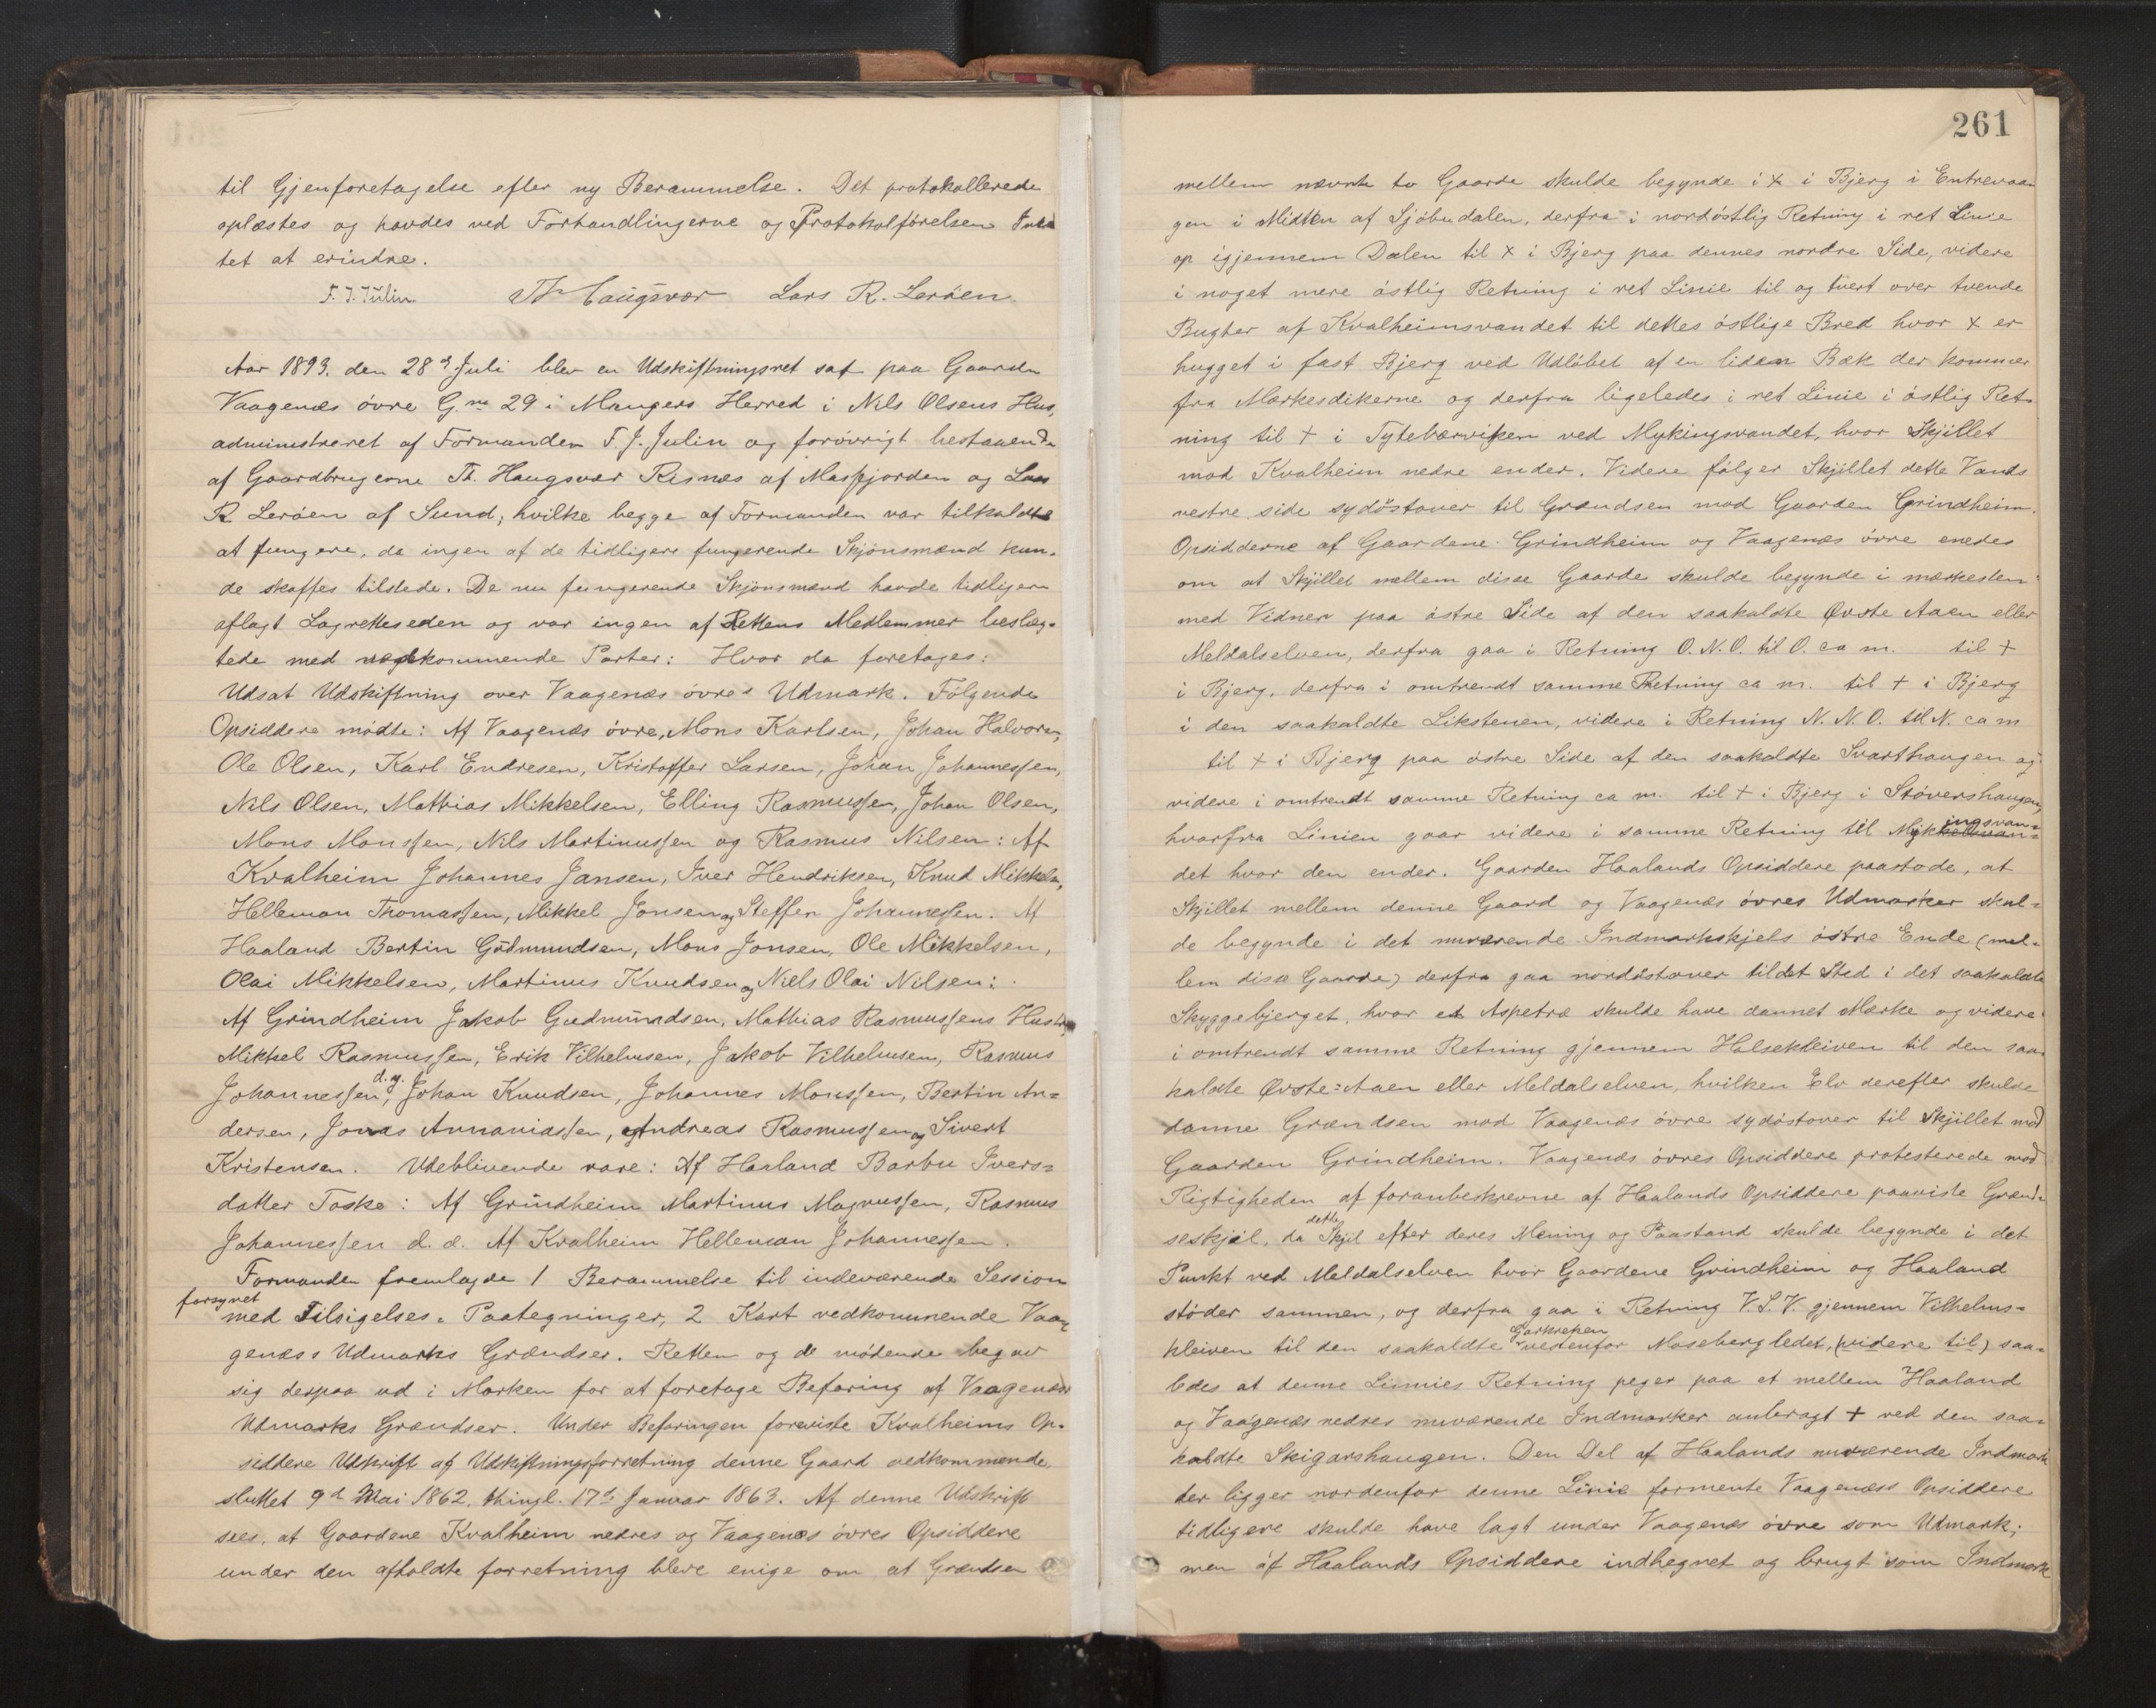 til Gjenforetagelse efter ny Berammelse. Det protokollerede
oplæstes og havdes ved Forhandlingerne og Protokolförelsen Intet
tet at erindre.
F. J. Julin. Th Haugsvær Lars R. Leröen.
Aar 1893. den 28d Juli blev en Udskiftningsret sat paa Gaarden
Vaagenæs övre G.no 29 i Mangers Herred i Nils Olsens Hus,
administreret af Formanden F. J. Julin og forövrigt bestaaende
af Gaardbrugerne Th. Haugsvær Risnæs af Masfjorden og Lars
R Leröen af Sund, hvilke begge af Formanden var tilkaldte
at fungere, da ingen af de tidligere fungerende Skjönsmænd kun-
de skaffes tilstede. De nu fungerende Skjönsmænd havde tidligere
aflagt Lagretteseden og var ingen af Rettens Medlemmer beslæg-
tede med vedkommende Parter: Hvor da foretages:
Udsat Udskiftning over Vaagenæs övres Udmark. Fölgende
Opsiddere mödte: Af Vaagenæs övre, Mons Karlsen, Johan Halvorsen,
Ole Olsen, Karl Endresen, Kristoffer Larsen, Johan Johannessen,
Nils Olsen, Mathias Mikkelsen, Elling Rasmussen, Johan Olsen,
Mons Monssen, Nils Martinussen og Rasmus Nilsen: Af
Kvalheim Johannes Jansen, Iver Hendriksen, Knud Mikkelsen,
Helleman Thomassen, Mikkel Jonsen og Steffen Johannessen. Af
Haaland Bertin Gudmundsen, Mons Jonsen, Ole Mikkelsen,
Olai Mikkelsen, Martinus Knudsen og Niels Olai Nilsen:
Af Grindheim Jakob Gudmundsen, Mathias Rasmussens Hustru,
Mikkel Rasmussen, Erik Vilhelmsen, Jakob Vilhelmsen, Rasmus
Johannessen d.y., Johan Knudsen, Johannes Monssen, Bertin An=
dersen, Jonas Annaniassen, Andreas Rasmussen og Sivert
Kristensen. Udeblivende vare: Af Haaland Barbu Ivers=
datter Toske: Af Grindheim Martinus Magnussen, Rasmus
Johannessen d. æ. Af Kvalheim Helleman Johannessen.
Formanden fremlagde 1 Berammelse til indeværende Session
forsynet med Tilsigelses-Paategninger, 2 Kart vedkommende Vaa-
genæss Udmarks Grændser. Retten og de mödende begav
sig derpaa ud i Marken for at foretage Befaring af Vaagenæss
Udmarks Grændser. Under Befaringen foreviste Kvalheims Op-
siddere Udskrift af Udskiftningsforretning denne Gaard vedkommende,
sluttet 9d Mai 1862, thingl. 17d Januar 1863. Af denne Udskrift
sees, at Gaardene Kvalheim nedres og Vaagenæs övres Opsiddere
under den afholdte forretning bleve enige om at Grændsen
261
mellem nævnte to Gaarde skulde begynde i x i Bjerg i Entrevaa-
gen i Midten af Sjöbudalen, derfra i nordöstlig Retning i ret Linie
op igjennem Dalen til x i Bjerg paa dennes nordre Side, videre
i noget mere östlig Retning i ret Linie til og tvert over tvende
Bugter af Kvalheimsvandet til dettes östlige Bred hvor x er
hugget i fast Bjerg ved Udlöbet af en liden Bæk der kommer
fra Mærkesdikerne og derfra ligeledes i ret Linie i östlig Ret-
ning til + i Tytebærviken ved Mykingsvandet, hvor Skjillet
mod Kvalheim nedre ender. Videre fölger Skjillet dette Vands
vestre side sydöstover til Grændsen mod Gaarden Grindheim.
Opsidderne af Gaardene Grindheim og Vaagenæs övre enedes
om at Skjillet mellem disse Gaarde skulde begynde i mærkesten
med Vidner paa östre Side af den saakaldte Övste Aaen eller
Meldalselven, derfra gaa i Retning O. N. O. til O. ca m. til +
i Bjerg, derfra i omtrendt samme Retning ca m. til + i Bjerg
i den saakaldte Likstenen, videre i Retning N. N. O. til N. ca m
til + i Bjerg paa östre Side af den saakaldte Svarthaugen og
videre i omtrendt samme Retning ca m. til + i Bjerg i Stövershaugen,
hvorfra Linien gaar videre i samme Retning til Mykingsvan=
det hvor den ender. Gaarden Haalands Opsiddere paastode, at
Skjillet mellem denne Gaard og Vaagenæs övres Udmarker skul=
de begynde i det nuværende Indmarkskjels östre Ende (mel-
lem disse Gaarde) derfra gaa nordöstover til det Sted i det saakaldte
Skyggebjerget, hvor et Aspetræ skulde have dannet Mærke og videre
i omtrendt samme Retning gjennem Halsekleiven til den saa-
kaldte Övste=Aaen eller Meldalselven, hvilken Elv derefter skulde
danne Grændsen mod Vaagenæs övre sydöstover til Skjillet mod
Gaarden Grindheim. Vaagenæs övres Opsiddere protesterede mod
Rigtigheden af foranbeskrevne af Haalands Opsiddere paaviste Grænd-
seskjel, da dette Skjel efter deres Mening og Paastand skulde begynde i det
Punkt ved Meldalselven hvor Gaardene Grindheim og Haaland
stöder sammen, og derfra gaa i Retning V. S. V. gjennem Vilhelms=
kleiven til den saakaldte Garkroken vestenfor Mosebergledet, (videre til) saa=
ledes at denne Linnies Retning peger paa et mellem Haaland
og Vaagenæs nedres nuværende Indmarker anbragt + ved den saa-
kaldte Skigarshaugen. Den Del af Haalands nuværende Indmark
der ligger nordenfor denne Linie formente Vaagenæss Opsiddere
tidligere skulde have lagt under Vaagenæs övre som Udmark;
men af Haalands Opsiddere indhegnet og brugt som Indmark